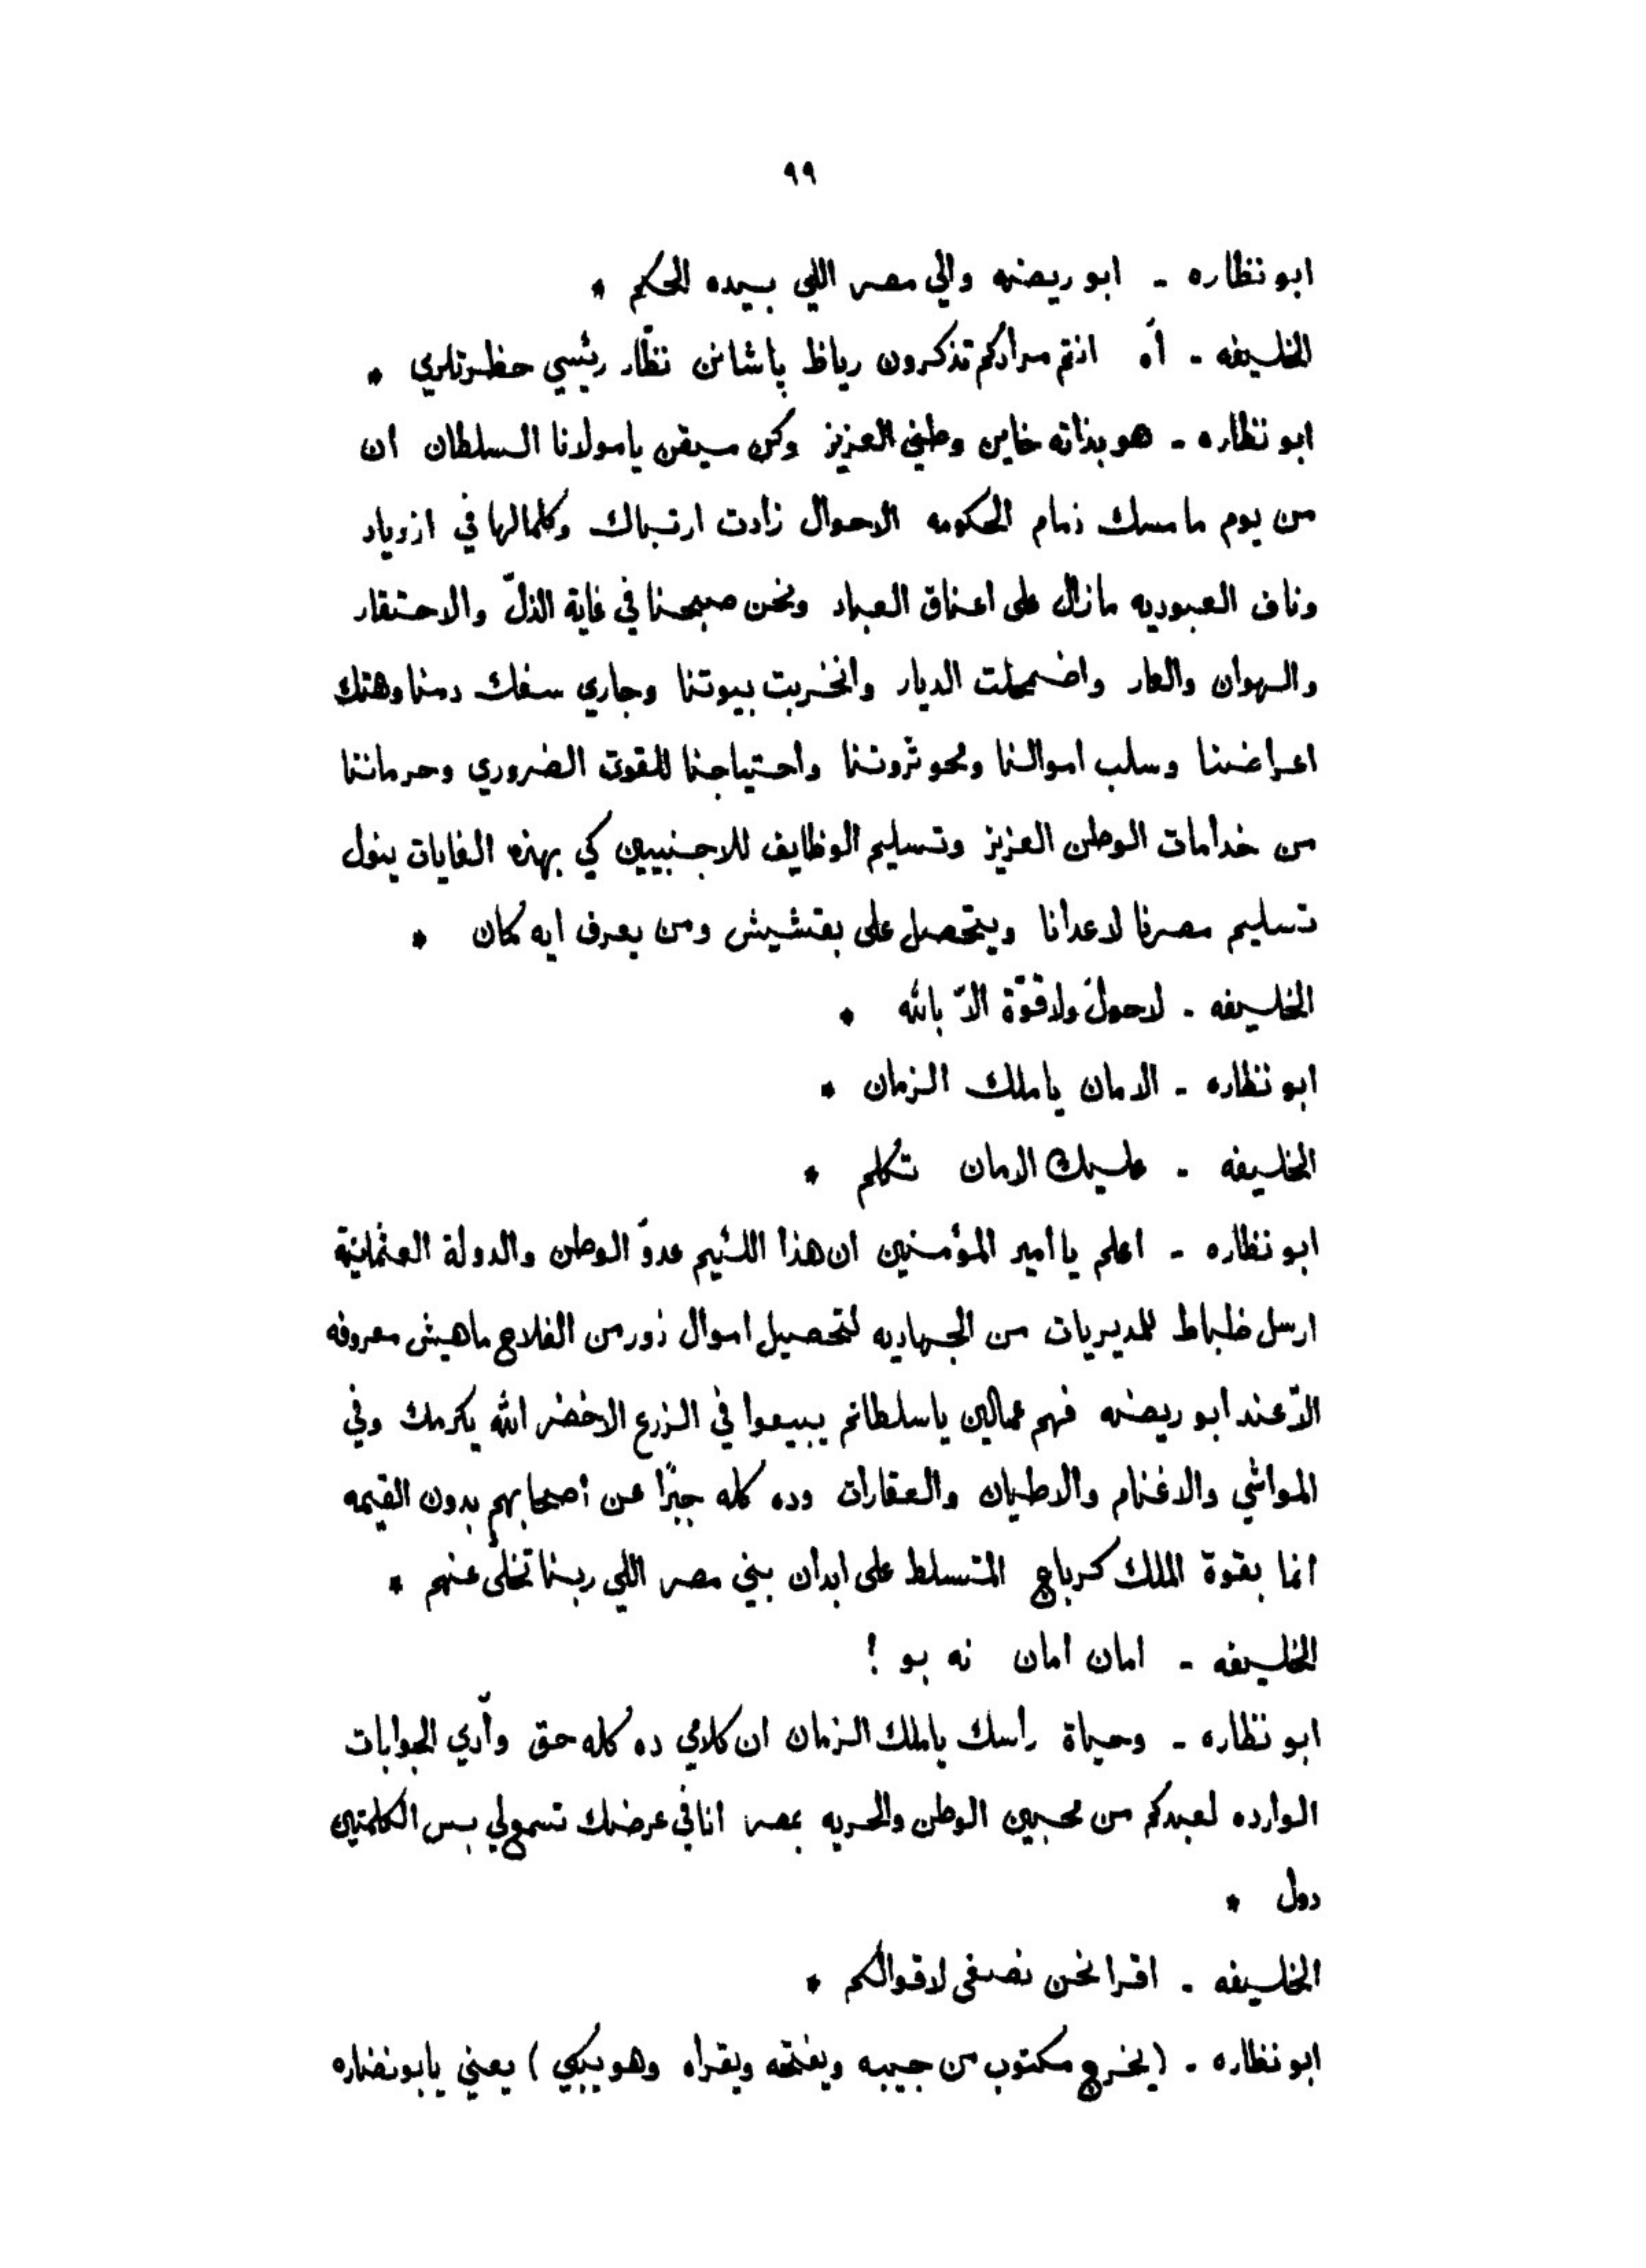 ٩٩
ابو نظاره - ابو ريضه والي مصر اللي بيده الحكم *
الخليفه - آه انتم مرادكم تذكرون رياظ پاشانن نظّار رئيسي حظرتلري *
ابو نظاره - هو بذاته خاين وطني العزيز وكن ميقن يا مولانا السلطان ان
من يوم ما مسك زمام الحكومه الاحوال زادت ارتباك وكلمالها في ازدياد
وناف العبوديه مازال على اعناق العباد ونحن صبحنا في غاية الذلّ والاحتقار
والهوان والعار واضمحلت الديار وانخربت بيوتنا وجاري سفك دمنا وهتك
اعراضنا وسلب اموالنا ومحو ثروتنا واحتياجنا للقوت الضروري وحرماننا
من خدامات الوطن العزيز وتسليم الوظايف للاجنبيين كي بهذه الغايات ينول
تسليم مصرنا لاعدانا ويتحصل على بقشيش ومن يعرف ايه كمان *
الخليفه - لاحول ولاقوّة الاّ بالله *
ابو نظاره - الامان يا ملك الزمان *
الخليفه - عليك الامان تكلم *
ابو نظاره - اعلم يا امير المؤمنين ان هذا اللئيم عدوّ الوطن والدولة العثمانية
ارسل ظباط للمديريات من الجهاديه لتحصيل اموال زور من الفلاح ماهيش معروفه
الاّ عند ابو ريضه فهم عمالين يا سلطانم يبيعوا في الزرع الاخضر الله يكرمك وفي
المواشي والاغنام والاطيان والعقارات وده كله جبرًا عن أصحابهم بدون القيمه
انما بقوة الملك كرباج المتسلط على ابدان بني مصر اللي ربنا تخلى عنهم *
الخليفه - امان امان نه بو !
ابو نظاره - وحياة راسك يا ملك الزمان ان كلامي ده كله حق وآدي الجوابات
الوارده لعبدكم من محبين الوطن والحريه بمصر انا في عرضك تسمع لي بس الكلمتين
دول *
الخليفه - اقرا نحن نصغى لاقوالكم *
ابو نظاره - (يخرج مكتوب من جيبه ويفتحه ويقراه وهو يبكي) يعني يابو نضاره